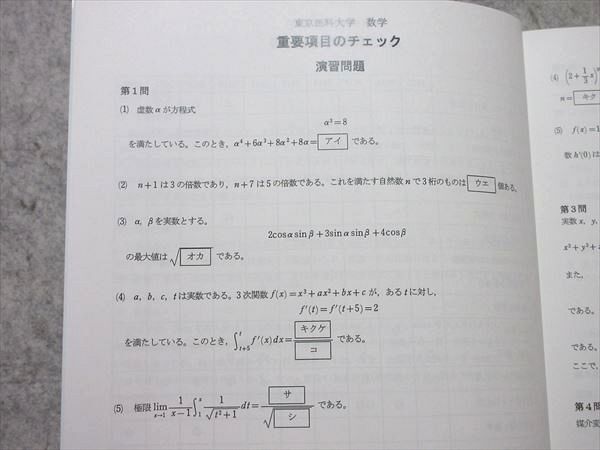 東京医科大学 数学
重要項目のチェック
演習問題
第1問
(1) 虚数 α が方程式
α³=8
を満たしている。このとき, α⁴+6α³+8α²+8α= アイ である。
(2) n+1は3の倍数であり, n+7は5の倍数である。これを満たす自然数nで3桁のものは ウエ 個ある。
(3) α, βを実数とする。
2cosα sinβ+3sinα sinβ+4cosβ
の最大値は √オカ である。
(4) a, b, c, tは実数である。3次関数 f(x)=x³+ax²+bx+c が, ある t に対し,
f′(t)=f′(t+5)=2
を満たしている。このとき, ∫_{t+5}^{t} f′(x)dx= キクケ/コ である。
(5) 極限 lim_{x→1} 1/(x−1) ∫_1^x 1/√(t²+1) dt= サ/√シ である。
(4) (2+1/3 x)
n= キク
(5) f(x)=1
数 h′(0) は
第3問
実数 x, y,
x²+y²+
また,
である。
である。
ここで,
第4問
媒介変